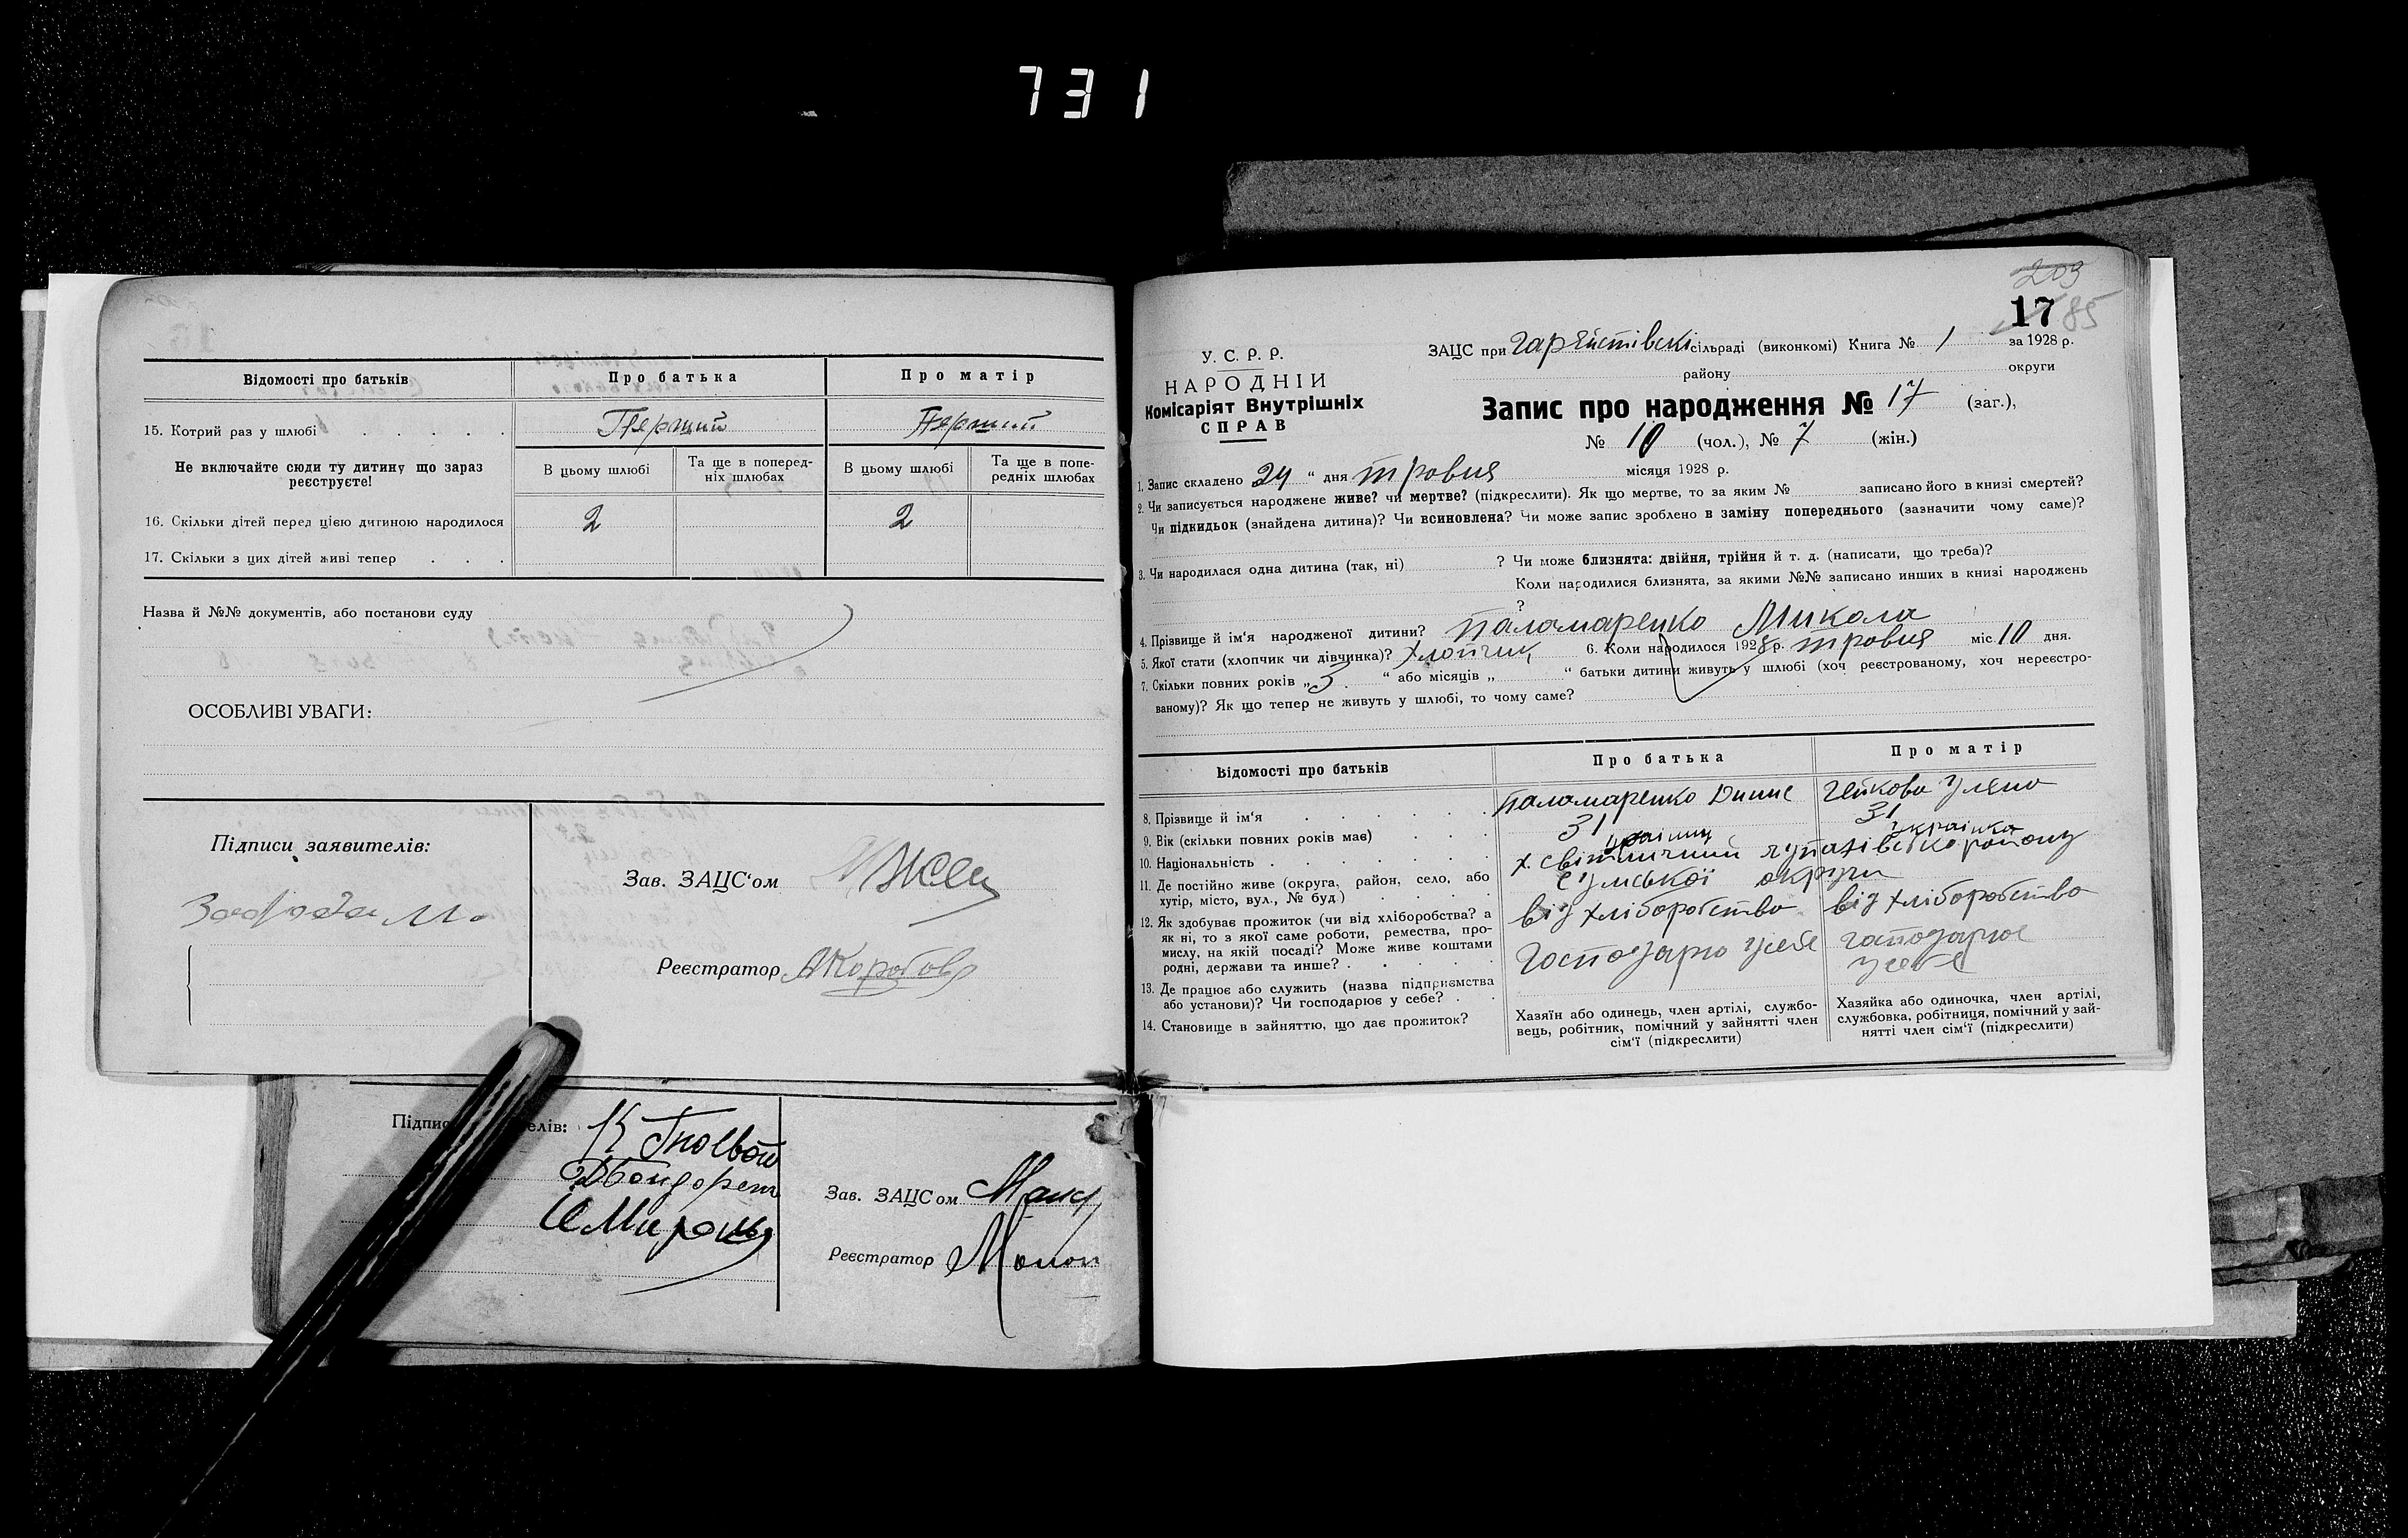 731
Відомості про батьків
Про батька
Про матір
15. Котрий раз у шлюбі . . . . .
Перший
Перший
Не включайте сюди ту дитину що зараз реєструєте!
В цьому шлюбі
Та ще в поперед-
ніх шлюбах
В цьому шлюбі
Та ще в попе-
редніх шлюбах
16. Скільки дітей перед цією дитиною народилося
2
2
17. Скільки з цих дітей живі тепер . . .
Назва й №№ документів, або постанови суду
ОСОБЛИВІ УВАГИ:
Підписи заявителів:
Зав. ЗАЦС'ом
Реєстратор
Зав. ЗАЦСом
Реєстратор
209
17 85
У. С. Р. Р.
НАРОДНІЙ
Комісаріят Внутрішніх
СПРАВ
ЗАЦС при сільраді (виконкомі) Книга № 1 за 1928 р.
району округи
Запис про народження № 17 (заг.),
№ 10 (чол.), № 7 (жін.)
1. Запис складено 24 “ дня травня місяця 1928 р.
2. Чи записується народжене живе? чи мертве? (підкреслити). Як що мертве, то за яким № записано його в книзі смертей?
Чи підкидьок (знайдена дитина)? Чи всиновлена? Чи може запис зроблено в заміну попереднього (зазначити чому саме)?
3. Чи народилася одна дитина (так, ні) ? Чи може близнята: двійня, трійня й т. д. (написати, що треба)?
Коли народилися близнята, за якими №№ записано инших в книзі народжень
?
4. Прізвище й ім'я народженої дитини? Паламаренко Микола
5. Якої стати (хлопчик чи дівчинка)? хлопчик 6. Коли народилося 1928 р. травня міс. 10 дня.
7. Скільки повних років „ 3 “ або місяців „ “ батьки дитини живуть у шлюбі (хоч реєстрованому, хоч нереєстро-
ваному)? Як що тепер не живуть у шлюбі, то чому саме?
Відомості про батьків
Про батька
Про матір
8. Прізвище й ім'я . . . . .
Паламаренко
Уляна
9. Вік (скільки повних років має) . . .
31
31
10. Національність . . . . . . .
українц
українка
11. Де постійно живе (округа, район, село, або
хутір, місто, вул., № буд.) . . . .
х світличний району
Сумської округи
12. Як здобуває прожиток (чи від хліборобства? а
як ні, то з якої саме роботи, ремества, про-
мислу, на якій посаді? Може живе коштами
родні, держави та инше? . . . . .
від хліборобства
від хліборобства
13. Де працює або служить (назва підприємства
або установи)? Чи господарює у себе? . .
Господарю у себе
господарює
у себе
14. Становище в зайняттю, що дає прожиток?
Хазяїн або одинець, член артілі, службо-
вець, робітник, помічний у зайнятті член
сім'ї (підкреслити)
Хазяйка або одиночка, член артілі,
службовка, робітниця, помічний у зай-
нятті член сім'ї (підкреслити)